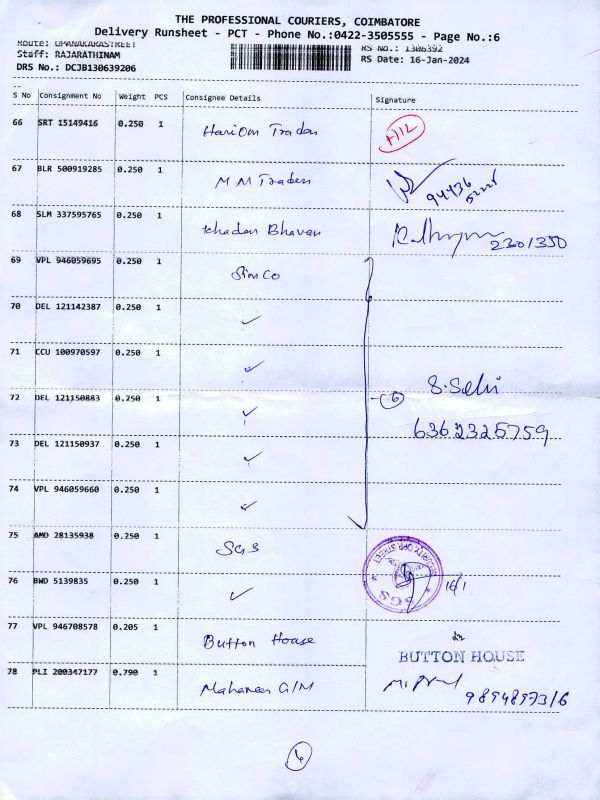 THE PROFESSIONAL COURIERS, COIMBATORE
Delivery Runsheet - PCT - Phone No.:0422-3505555 - Page No.:6
Route: UPANAKARASTREET
RS No.: 1306392
Staff: RAJARATHINAM
RS Date: 16-Jan-2024
DRS No.: DCJB130639206
S No Consignment No Weight PCS Consignee Details Signature
66 SRT 15149416 0.250 1 Hariom Traders
67 BLR 500919285 0.250 1 M M Traders 94436
68 SLM 337595765 0.250 1 Khadar Bhavan 2301350
69 VPL 946059695 0.250 1 Simco
70 DEL 121142387 0.250 1 ✓
71 CCU 100970597 0.250 1 ✓
72 DEL 121150883 0.250 1 ✓ 6 S. Selvi
73 DEL 121150937 0.250 1 ✓ 6362325759
74 VPL 946059660 0.250 1 ✓
75 AMD 28135938 0.250 1 SGS
76 BWD 5139835 0.250 1 ✓ SGS 16/1
77 VPL 946708578 0.205 1 Button House BUTTON HOUSE
78 PLI 200347177 0.790 1 Mahaveer G/M 9894897316
6